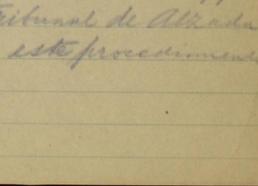 Tribunal de Alzada
este procedimiento